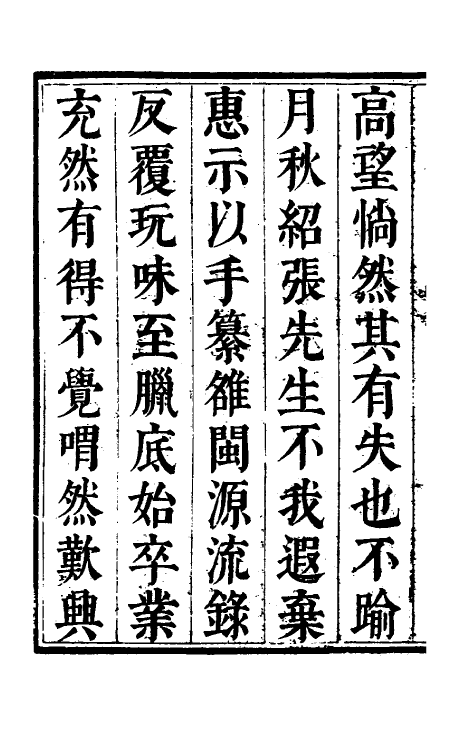 高望惝然其有失也不踰
月秋紹張先生不我遐棄
惠示以手纂雒閩源流錄
反覆玩味至臘底始卒業
充然有得不覺喟然歎興